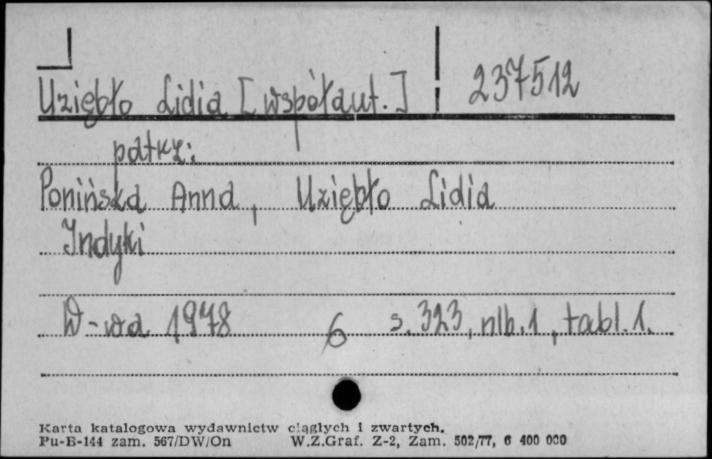 Uziębło Lidia [współaut.] 237512
patrz:
Ponińska Anna, Uziębło Lidia
Indyki
W-wa 1978 6 s. 323, nlb. 1, tabl. 1.
Karta katalogowa wydawnictw ciągłych i zwartych.
Pu-B-144 zam. 567/DW/On W.Z.Graf. Z-2, Zam. 502/77, 6 400 000